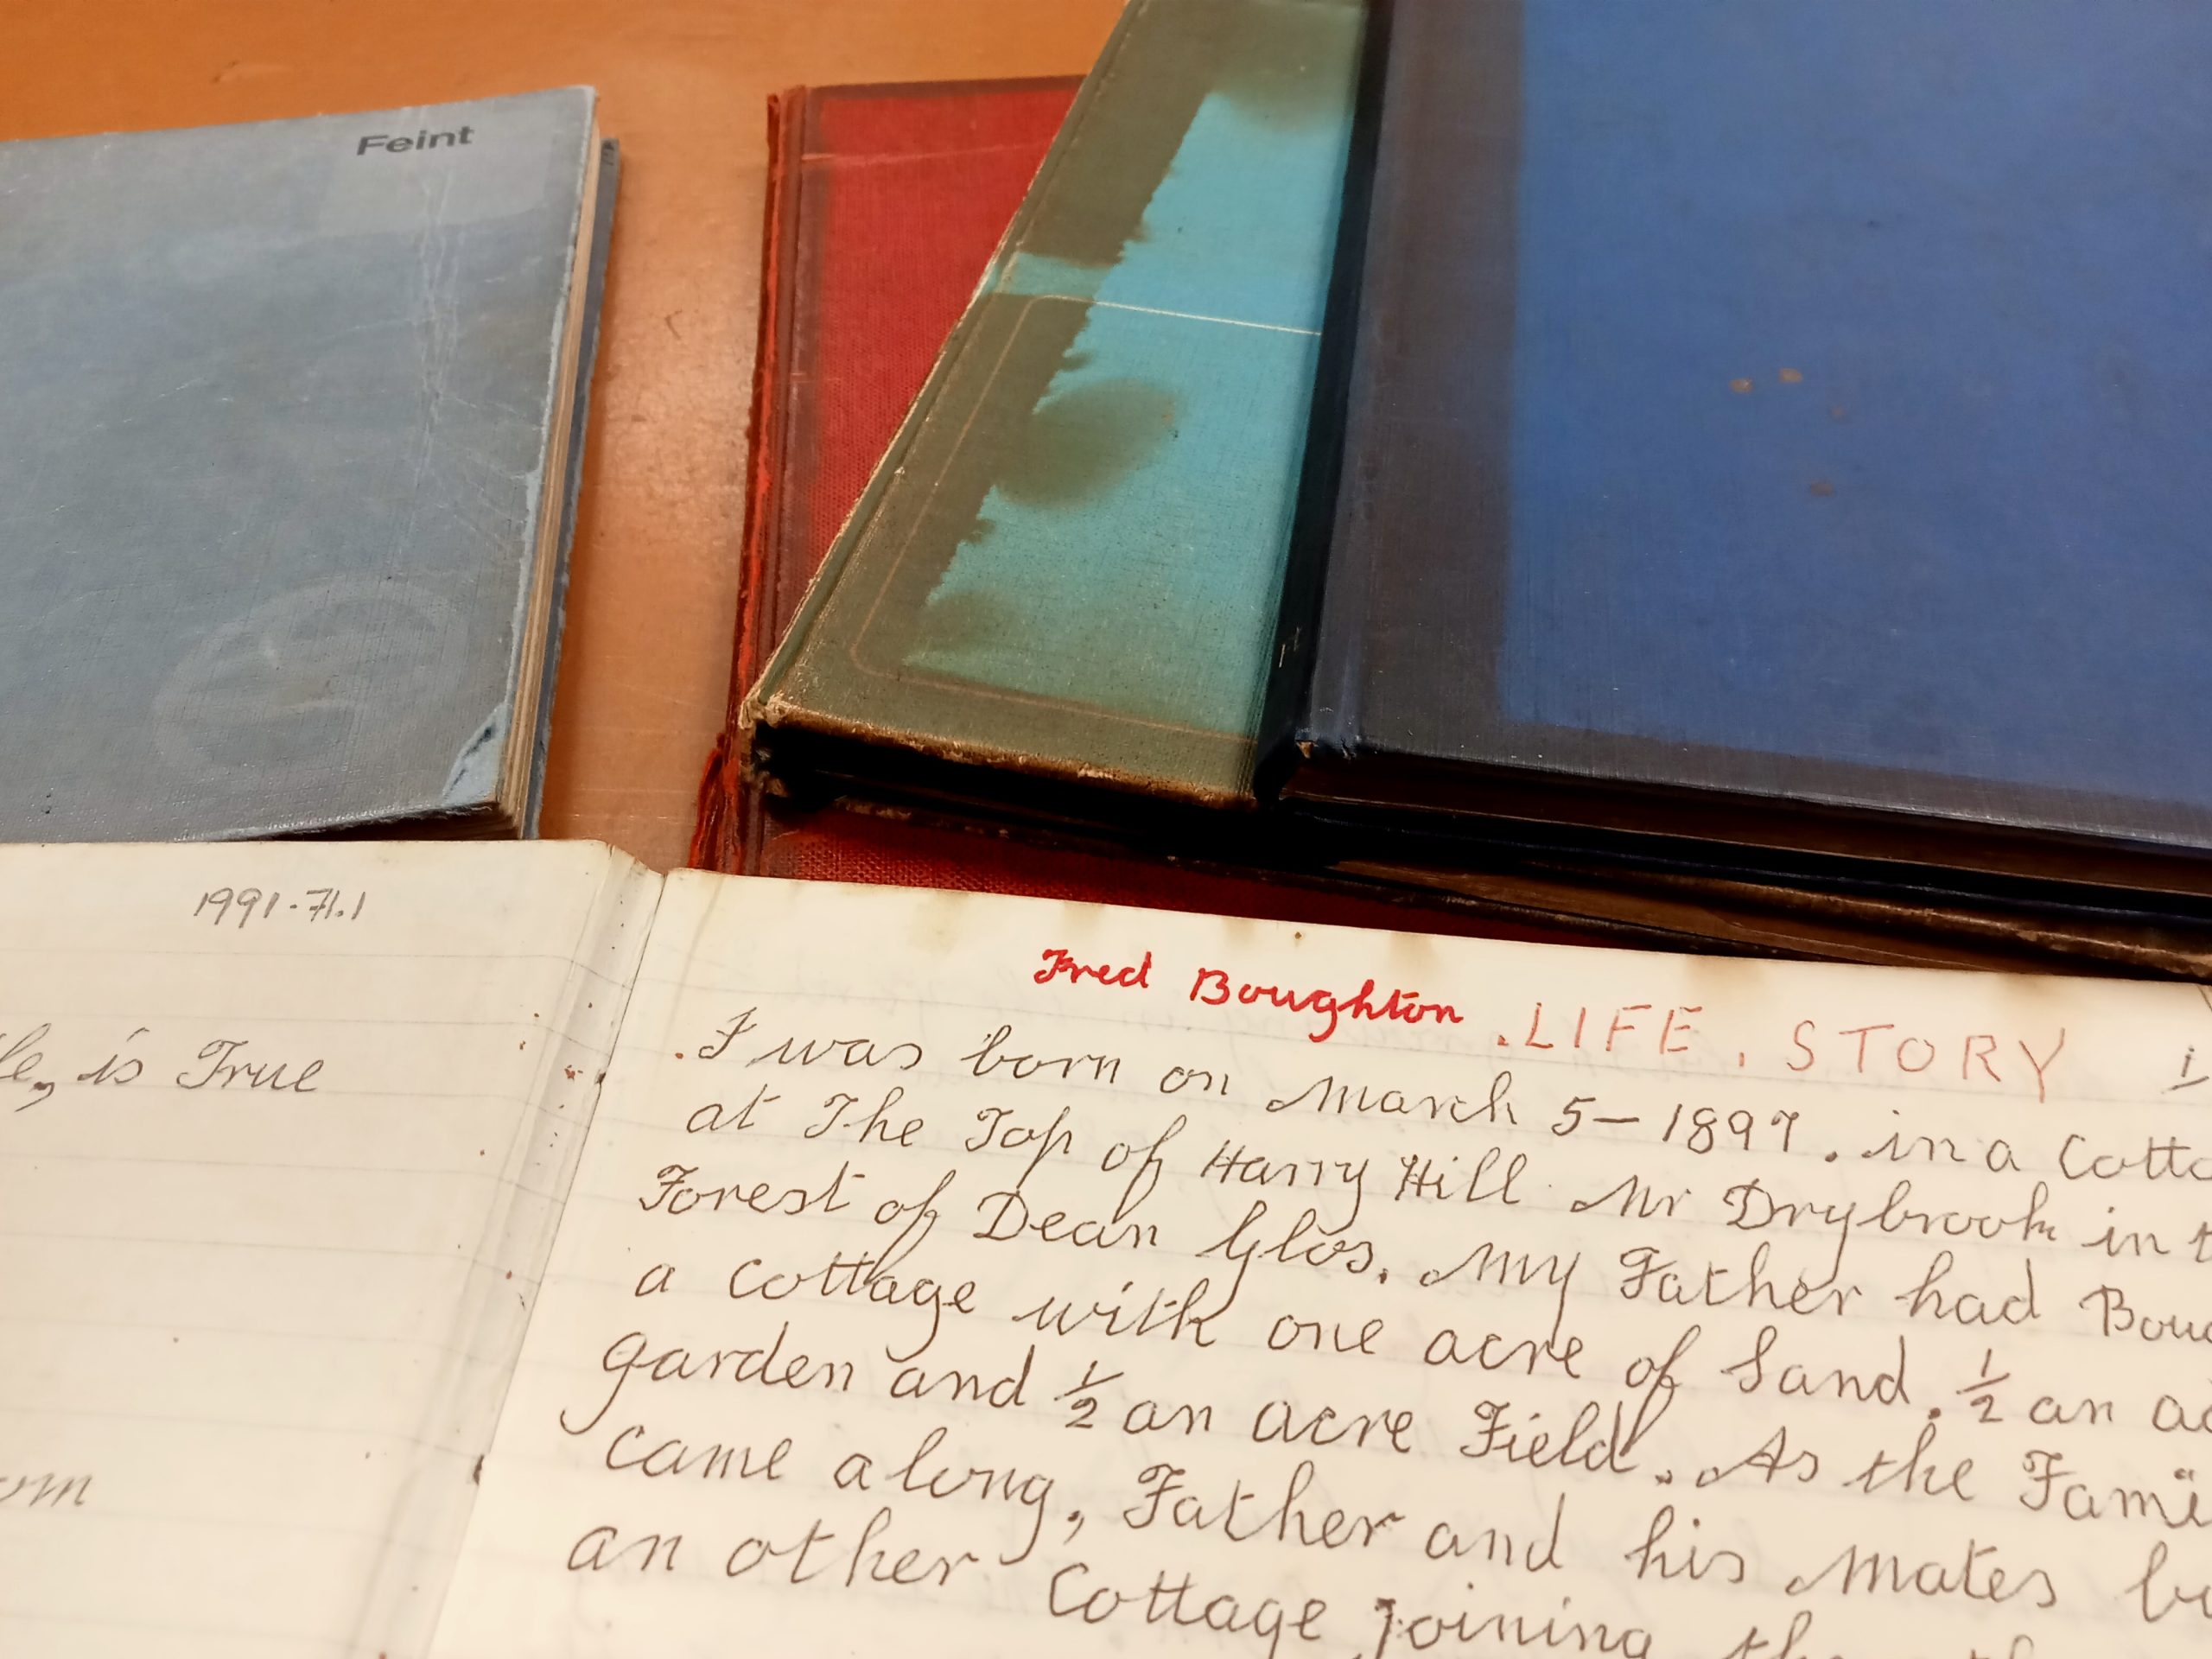 Feint
1991.71.1
is True
Fred Boughton . LIFE . STORY
.I was born on March 5-1897. in a Cotta
at The Top of Harry Hill Nr Drybrook in t
Forest of Dean Glos. My Father had Boug
a cottage with one acre of Land. 1/2 an ac
garden and 1/2 an acre Field. As the Fami
came along, Father and his Mates bu
an other Cottage joining the